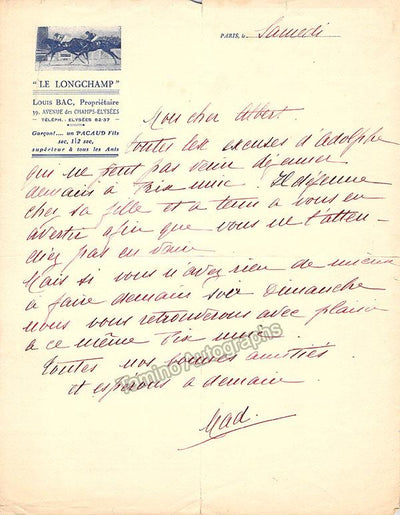 "LE LONGCHAMP"
LOUIS BAC, Propriétaire
99, AVENUE des CHAMPS-ELYSÉES
TÉLÉPH. : ELYSÉES 82-37
Garçon!.... un PACAUD Fils
sec, 1|2 sec,
supérieur à tous les Anis
PARIS, le Samedi
Mon cher Albert
toutes les excuses d'Adolphe
qui ne peut pas venir déjeuner
demain à . Il déjeune
chez sa fille et a tenu à vous en
avertir afin que vous ne l'atten-
diez pas en vain
Mais si vous n'avez rien de mieux
à faire demain soir Dimanche
nous vous retrouverons avec plaisir
à ce même
Toutes nos bonnes amitiés
et espérons à demain
Mad.
Tamino Autographs